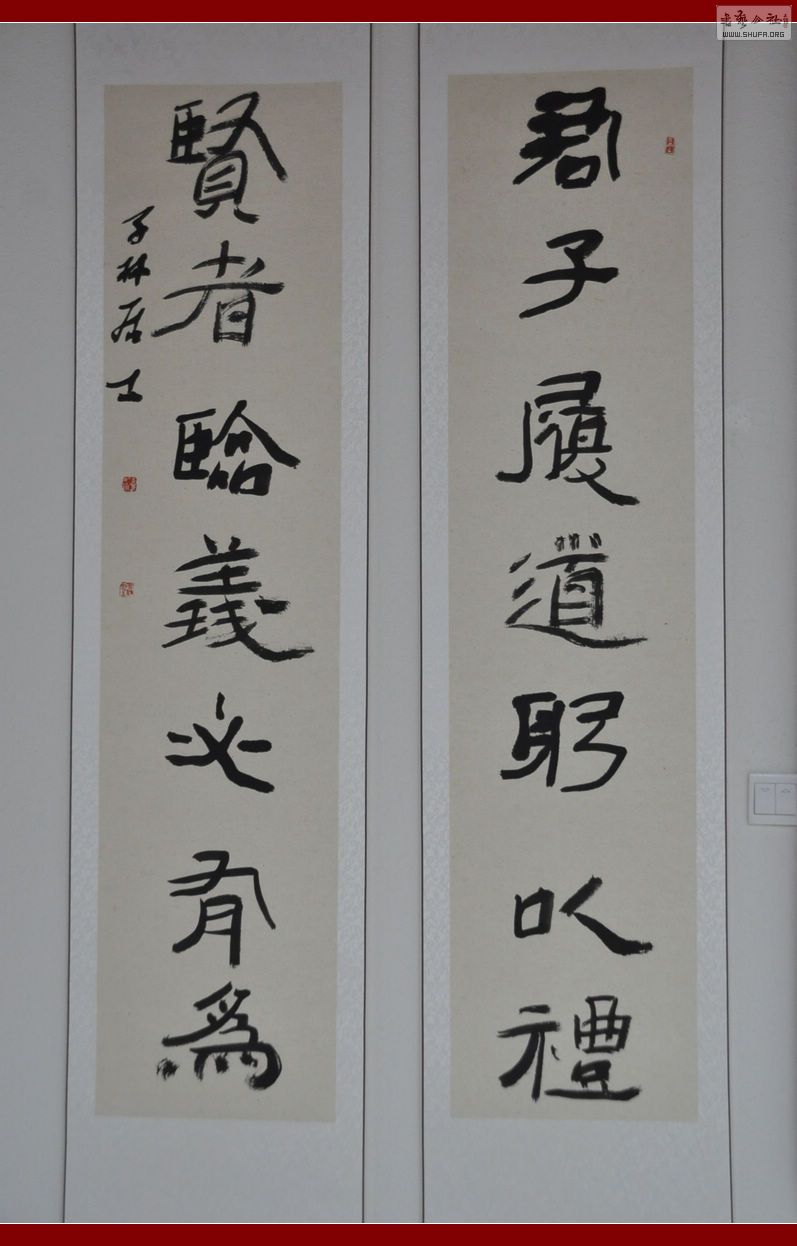 君子履道躬以禮
賢者臨義必有為
子林居士
書藝公社
WWW.SHUFA.ORG